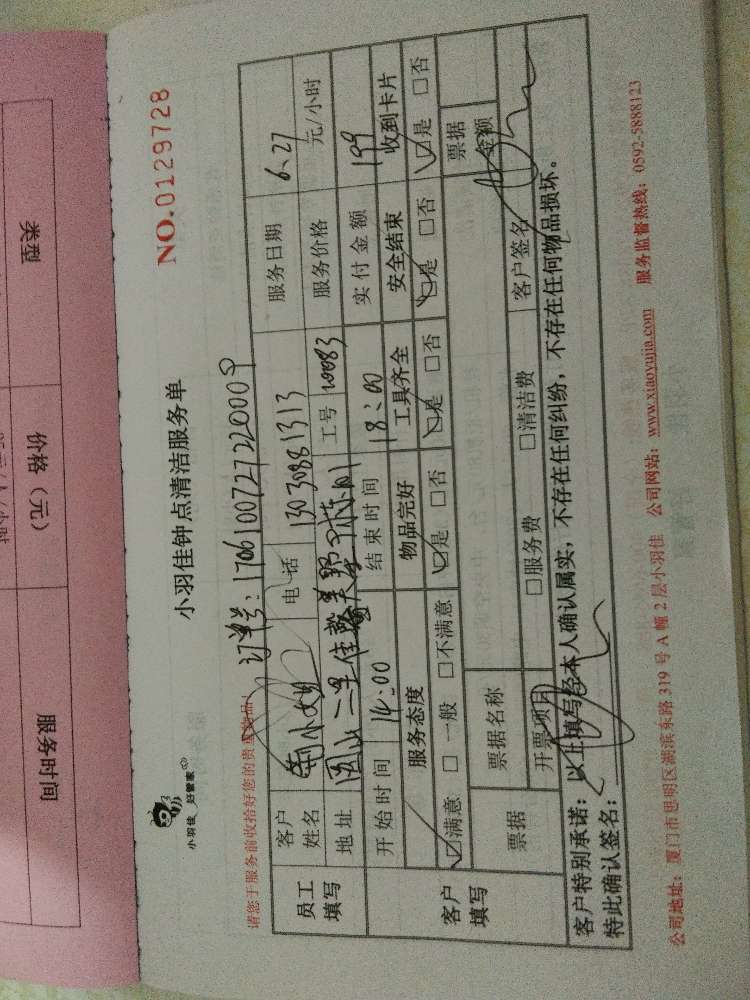 类型
价格（元）
服务时间
NO.0129728
小羽佳 好管家
小羽佳钟点清洁服务单
请您于服务前收拾好您的贵重物品
订单号：
员工填写
客户姓名
电话 13030881313
服务日期 6、27
地址
工号
服务价格 元/小时
客户填写
开始时间 14:00
结束时间 18:00
实付金额 199
服务态度
物品完好
工具齐全
安全结束
收到卡片
☑满意 □一般 □不满意
☑是 □否
☑是 □否
☑是 □否
☑是 □否
票据
票据名称
票据金额
开票项目
□服务费 □清洁费
客户签名
客户特别承诺：以上填写经本人确认属实，不存在任何纠纷，不存在任何物品损坏。
特此确认签名：
公司地址：厦门市思明区湖滨东路319号A幢2层小羽佳 公司网站：www.xiaoyujia.com 服务监督热线：0592-5888123